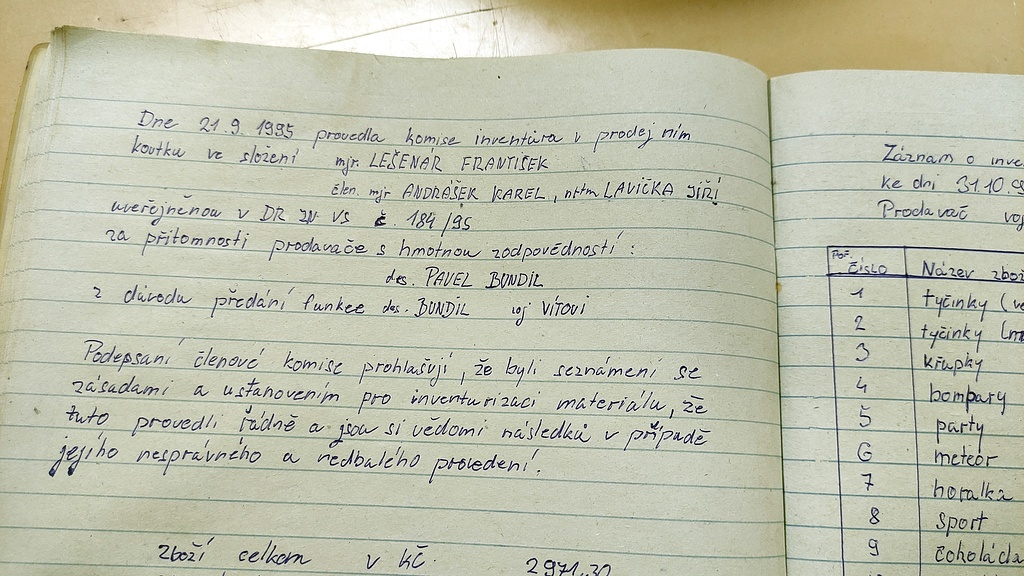 Dne 21.9.1995 provedla komise inventura v prodejním
koutku ve složení mjr. LEŠENAR FRANTIŠEK
člen. mjr ANDRAŠEK KAREL, nrtm LAVIČKA JIŘÍ
uveřejněnou v DR ZN VS č. 184/95
za přítomnosti prodavače s hmotnou zodpovědností:
des. PAVEL BUNDIL
z důvodu předání funkce des. BUNDIL voj VÍTOVI
Podepsaní členové komise prohlašují, že byli seznámeni se
zásadami a ustanovením pro inventurizaci materiálu, že
tuto provedli řádně a jsou si vědomi následků v případě
jejího nesprávného a nedbalého provedení.
Zboží celkem v KČ. 2971,30
Záznam o inve
ke dni 31.10.95
Prodavač voj
Poř. číslo Název zbož
1 tyčinky (ve
2 tyčinky (m
3 křupky
4 bompary
5 party
6 meteor
7 horalka
8 sport
9 čokoláda